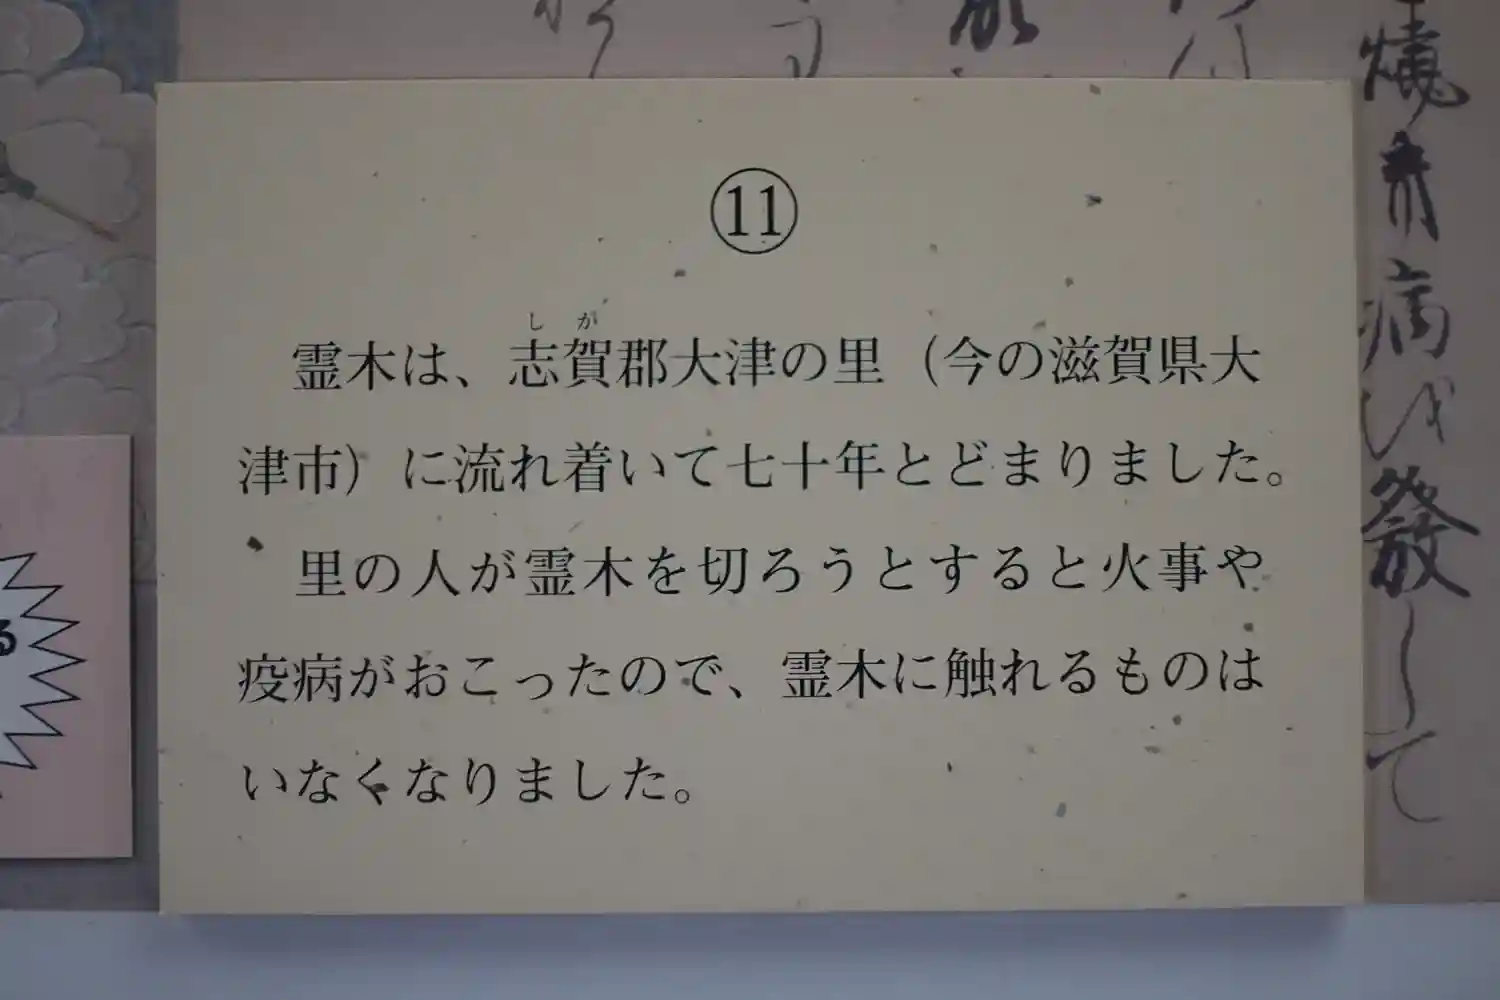 ⑪
霊木は、志賀郡大津の里（今の滋賀県大
しが
津市）に流れ着いて七十年とどまりました。
里の人が霊木を切ろうとすると火事や
疫病がおこったので、霊木に触れるものは
いなくなりました。
る
病
發して